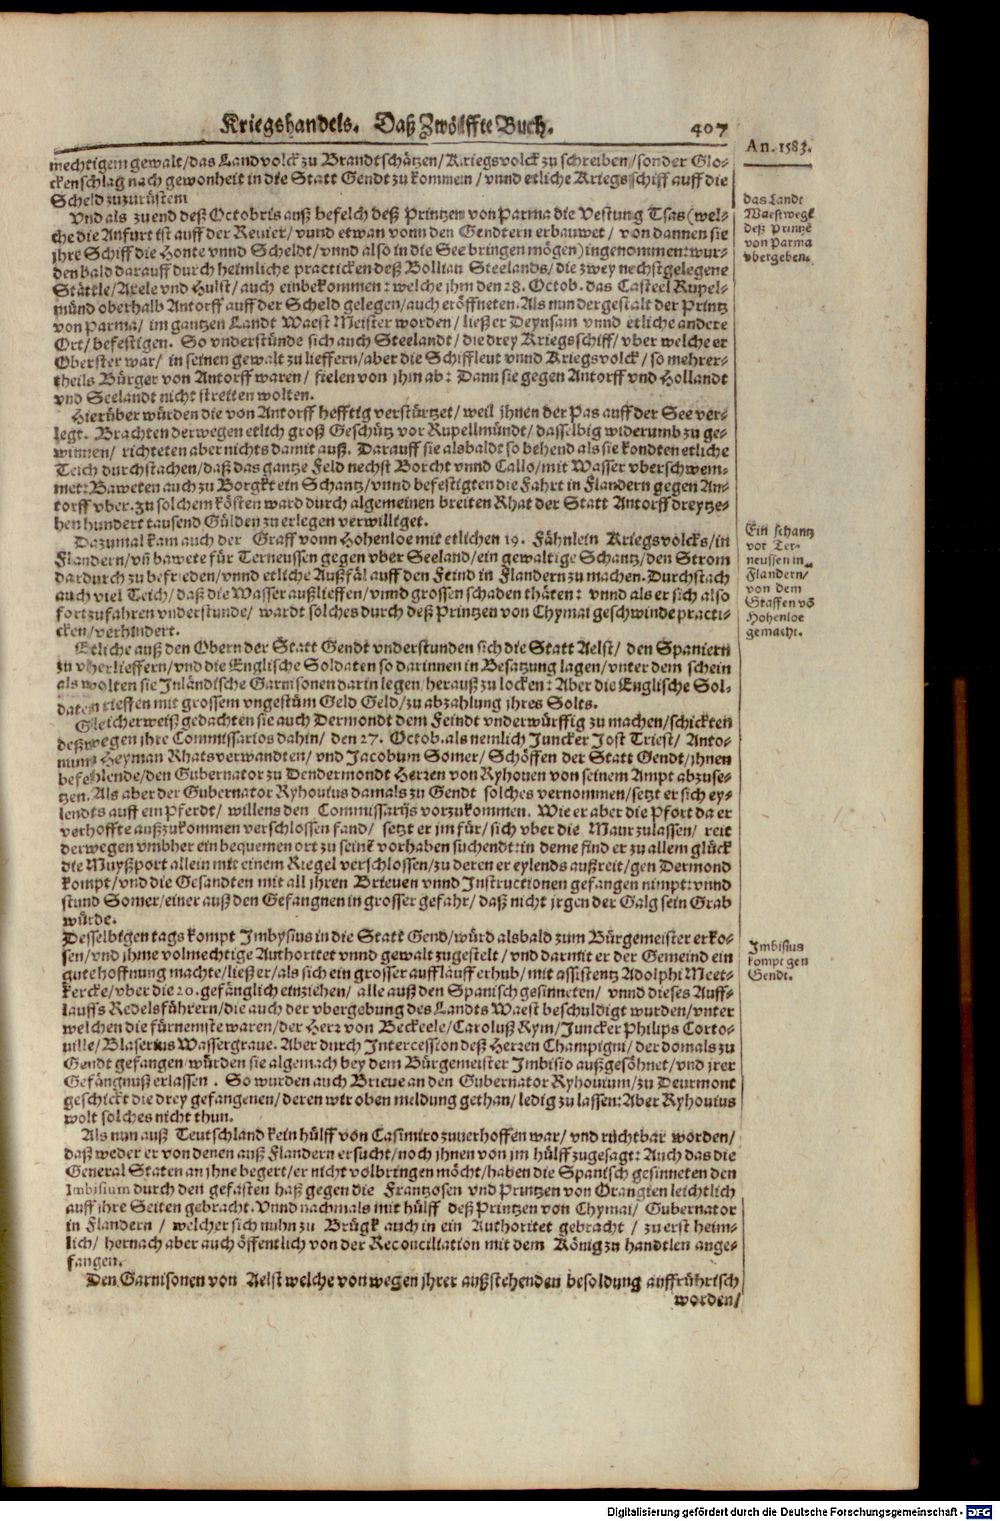 Kriegshandels. Daß Zwölffte Buch. 407
An. 1583.
mechtigem gewalt/das Landvolck zu Brandtschätzen/Kriegsvolck zu schreiben/sonder Glo-
ckenschlag nach gewonheit in die Statt Gendt zu kommen/vnnd etliche Kriegsschiff auff die
Scheld zuzurüstem
Vnd als zu end deß Octobris auß befelch deß Printzen von Parma die Vestung Tsas (wel-
che die Anfurt ist auff der Reuier/vund etwan vonn den Gendtern erbauwet/von dannen sie
jhre Schiff die Honte vnnd Scheldt/vnnd also in die See bringen mögen) ingenommen: wur-
den bald darauff durch heimliche practicken deß Bolliau Steelands/die zwey nechstgelegene
Stättle/Axele vnd Hulst/auch einbekommen: welche jhm den 28. Octob. das Casteel Rupel-
münd oberhalb Antorff auff der Scheld gelegen/auch eröffneten. Als nun dergestalt der Printz
von Parma/im gantzen Landt Waest Meister worden/ließ er Deynsam vnnd etliche andere
Ort/befestigen. So vnderstünde sich auch Steelandt/die drey Kriegsschiff/vber welche er
Oberster war/in seinen gewalt zu lieffern/aber die Schiffleut vnnd Kriegsvolck/so mehrer-
theils Bürger von Antorff waren/fielen von jhm ab: Dann sie gegen Antorff vnd Hollandt
vnd Seelandt nicht streiten wolten.
das Landt
Waest wegē
deß Printzē
von Parma
vbergeben.
Hierüber würden die von Antorff hefftig verstürtzet/weil jhnen der Pas auff der See ver-
legt. Brachten derwegen etlich groß Geschütz vor Rupellmündt/dasselbig widerumb zu ge-
winnen/richteten aber nichts damit auß. Darauff sie alsbaldt so behend als sie kondten etliche
Teich durchstachen/daß das gantze Feld nechst Borcht vnnd Callo/mit Wasser vberschwem-
met: Baweten auch zu Borgkt ein Schantz/vnnd befestigten die Fahrt in Flandern gegen An-
torff vber. Zu solchem kösten ward durch algemeinen breiten Rhat der Statt Antorff dreytze-
hen hundert tausend Gülden zu erlegen verwilliget.
Dazumal kam auch der Graff vonn Hohenloe mit etlichen 19. Fähnlein Kriegsvolcks/in
Flandern/vñ bawete für Terneussen gegen vber Seeland/ein gewaltige Schantz/den Strom
dardurch zu befrieden/vnnd etliche Außfäl auff den Feind in Flandern zu machen. Durchstach
auch viel Teich/daß die Wasser außlieffen/vnnd grossen schaden thäten: vnnd als er sich also
fort zu fahren vnderstunde/wardt solches durch deß Printzen von Chymai geschwinde practi-
cken/verhindert.
Ein schantz
vor Ter-
neussen in
Flandern/
von dem
Graffen vō
Hohenloe
gemacht.
Etliche auß den Obern der Statt Gendt vnderstunden sich die Statt Aelst/den Spaniern
zu vberlieffern/vnd die Englische Soldaten so darinnen in Besatzung lagen/vnter dem schein
als wolten sie Inländische Garnisonen darin legen/herauß zu locken: Aber die Englische Sol-
daten rieffen mit grossem vngestüm Geld Geld/zu abzahlung jhres Solts.
Gleicherweiß gedachten sie auch Dermondt dem Feindt vnderwürffig zu machen/schickten
deßwegen jhre Commissarios dahin/den 27. Octob. als nemlich Juncker Jost Triest/Anto-
nium Heyman Rhatsverwandten/vnd Jacobum Somer/Schöffen der Statt Gendt/jhnen
befehlende/den Gubernator zu Dendermondt Herren von Ryhouen von seinem Ampt abzuse-
tzen. Als aber der Gubernator Ryhouius damals zu Gendt solches vernommen/setzt er sich ey-
lendts auff ein Pferdt/willens den Commissarijs vorzukommen. Wie er aber die Pfort da er
verhoffte außzukommen verschlossen fand/setzt er jm für/sich vber die Maur zulassen/reit
derwegen vmbher ein bequemen ort zu seinē vorhaben suchendt: in deme find er zu allem glück
die Muyßport allein mit einem Riegel verschlossen/zu deren er eylends außreit/gen Dermond
kompt/vnd die Gesandten mit all jhren Brieuen vnnd Instructionen gefangen nimpt: vnnd
stund Somer/einer auß den Gefangnen in grosser gefahr/daß nicht jrgen der Galg sein Grab
würde.
Desselbigen tags kompt Imbysius in die Statt Gend/würd alsbald zum Bürgemeister erko-
sen/vnd jhme volmechtige Authoritet vnnd gewalt zugestelt/vnd darmit er der Gemeind ein
gute hoffnung machte/ließ er/als sich ein grosser aufflauff erhub/mit assistentz Adolphi Meet-
kercke/vber die 20. gefänglich einziehen/alle auß den Spanisch gesinneten/vnnd dieses Auff-
lauffs Redelsführern/die auch der vbergebung des Landts Waest beschuldigt wurden/vnter
welchen die fürnemste waren/der Herr von Beckeele/Caroluß Rym/Juncker Philips Corto-
uille/Blaserius Wassergraue. Aber durch Intercession deß Herren Champigni/der domals zu
Gendt gefangen/würden sie algemach bey dem Bürgemeister Imbisio außgesöhnet/vnd jrer
Gefängnuß erlassen. So wurden auch Brieue an den Gubernator Ryhouium/zu Deurmont
geschickt die drey gefangenen/deren wir oben meldung gethan/ledig zu lassen: Aber Ryhouius
wolt solches nicht thun.
Imbisius
kompt gen
Gendt.
Als nun auß Teutschland kein hülff von Casimiro zuuerhoffen war/vnd rüchtbar worden/
daß weder er von denen auß Flandern ersucht/noch jhnen von jm hülff zugesagt: Auch das die
General Staten an jhne begert/er nicht volbringen möcht/haben die Spanisch gesinneten den
Imbisium durch den gefasten haß gegen die Frantzosen vnd Printzen von Orangien leichtlich
auff jhre Seiten gebracht. Vnnd nachmals mit hülff deß Printzen von Chymai/Gubernator
in Flandern/welcher sich nuhn zu Brügk auch in ein Authoritet gebracht/zu erst heim-
lich/hernach aber auch öffentlich von der Reconciliation mit dem König zu handtlen ange-
fangen.
Den Garnisonen von Aelst welche von wegen jhrer außstehenden besoldung auffrührisch
worden/
Digitalisierung gefördert durch die Deutsche Forschungsgemeinschaft - DFG